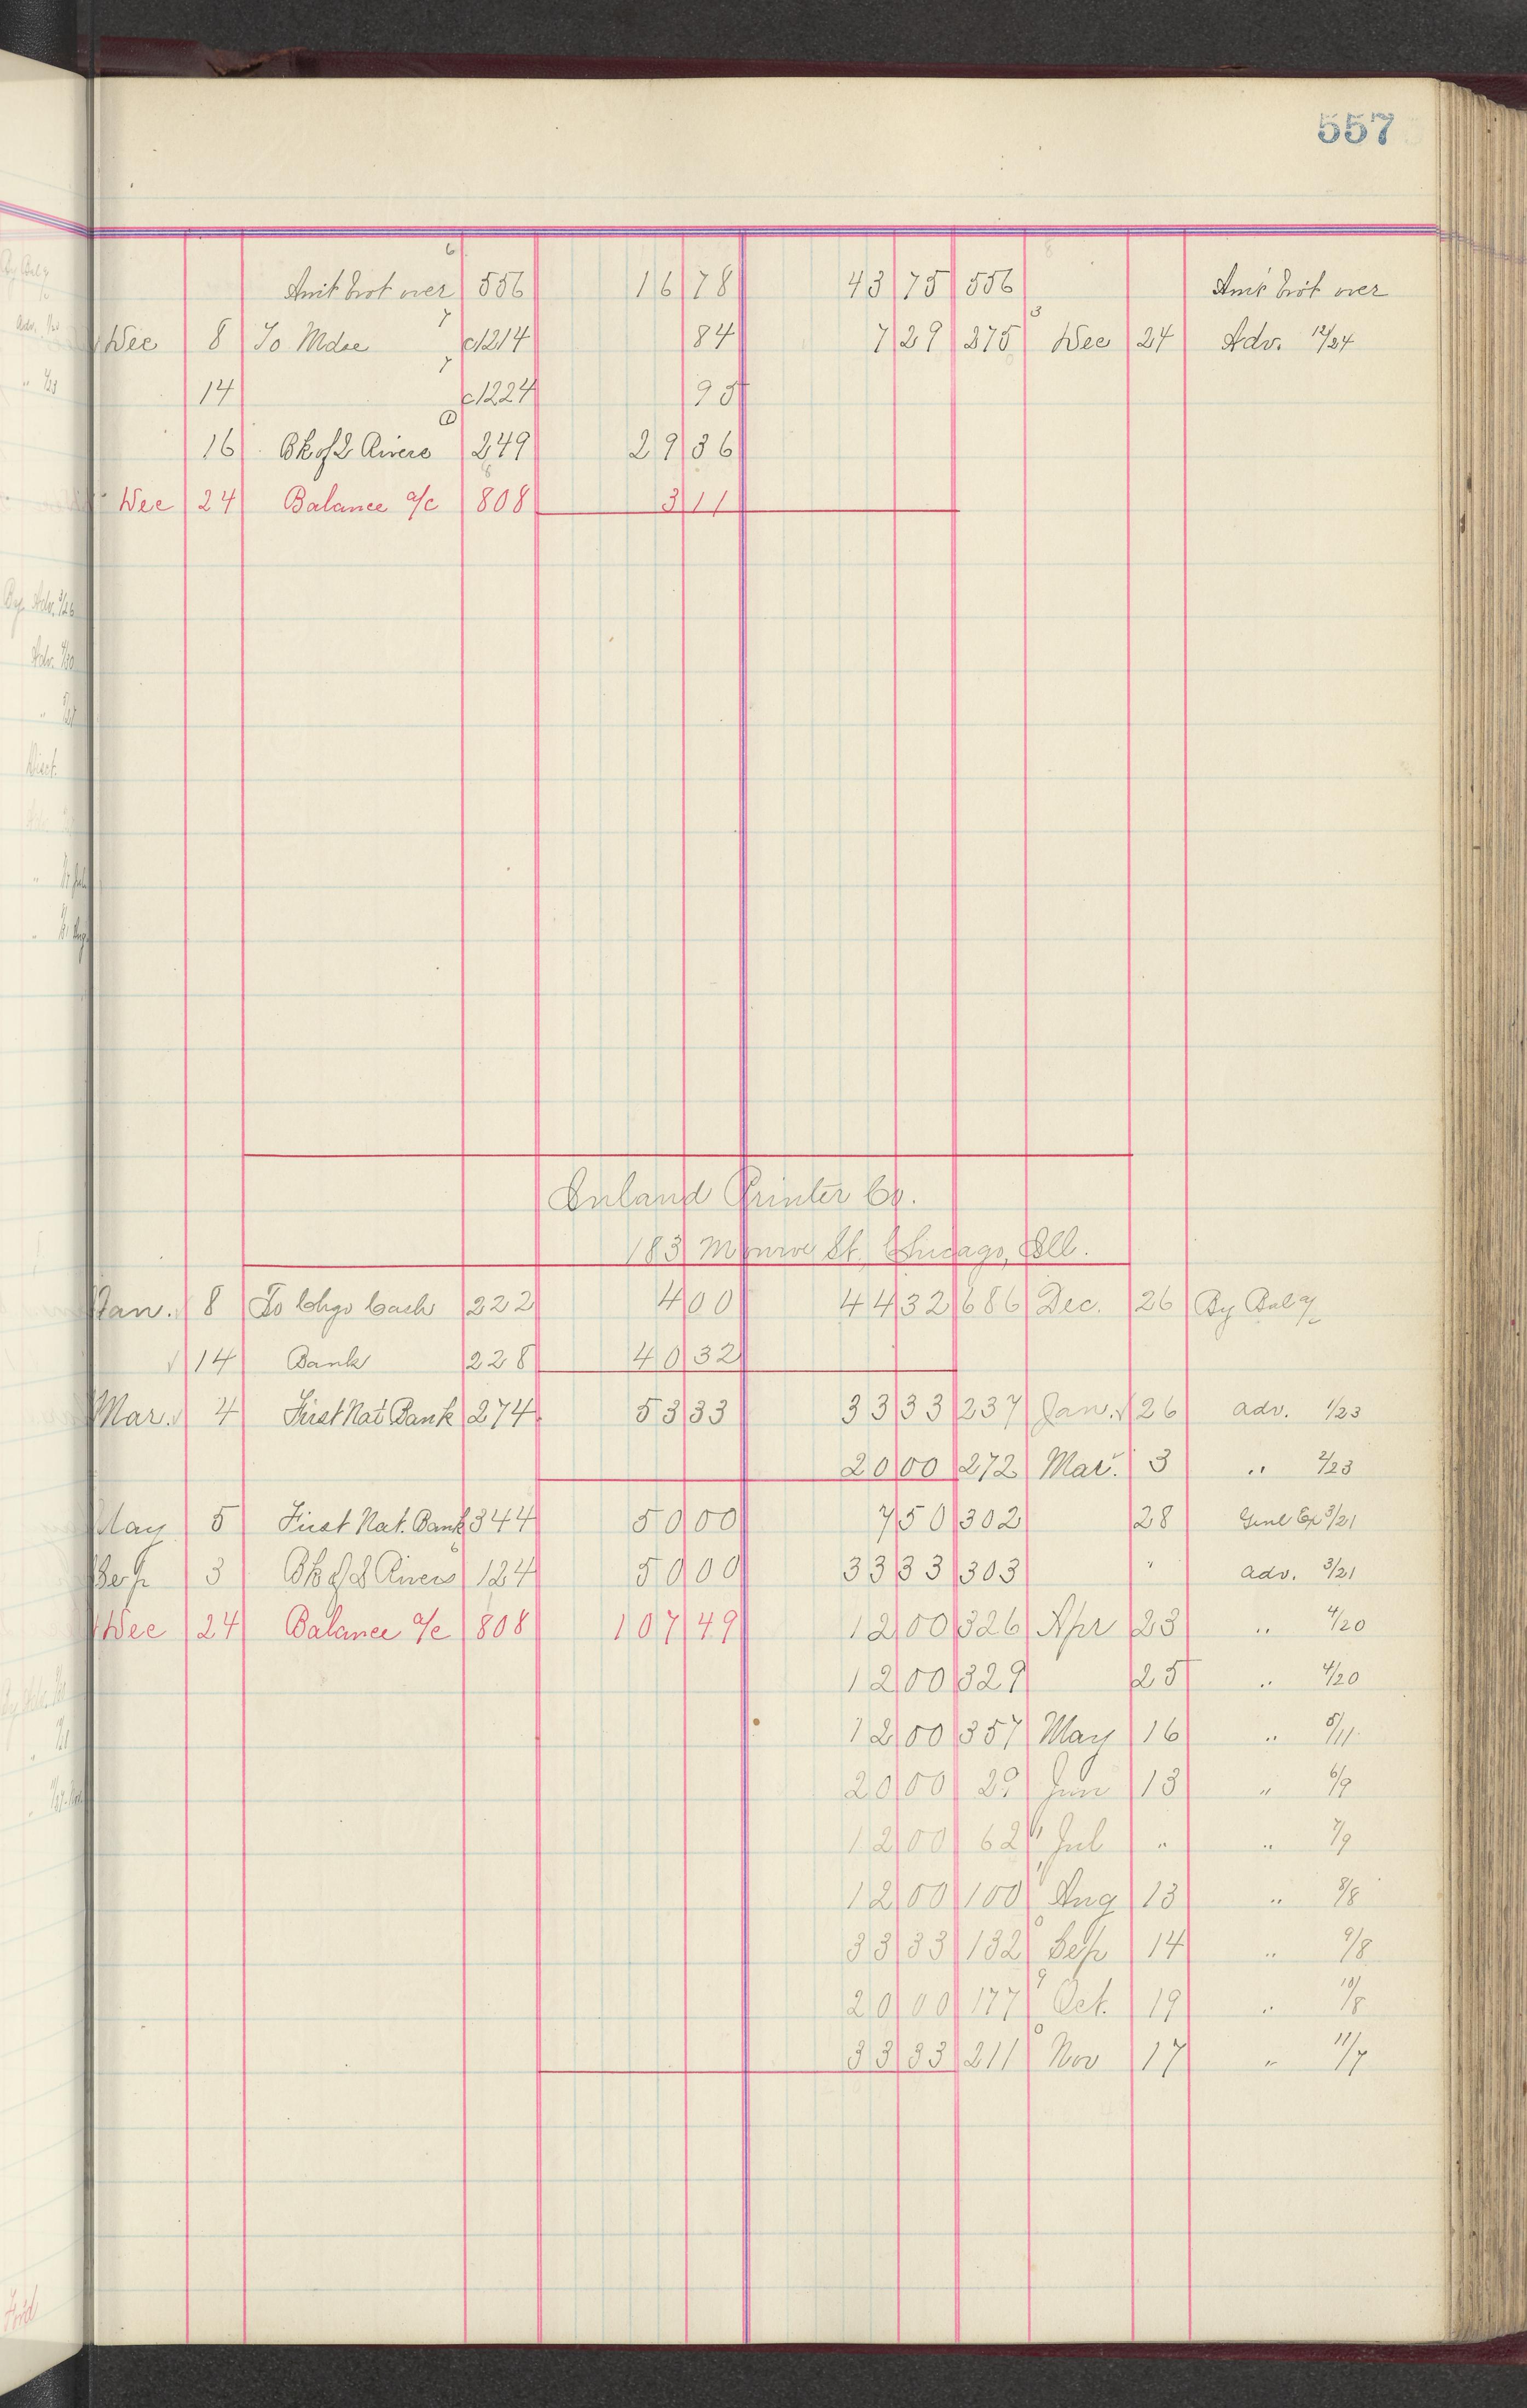 557
Amt brot over 556 16 78 43 75 556 Amt brot over
Dec 8 To Mdse c1214 84 7 29 275 Dec 24 Adv. 12/24
14 c1224 95
16 Bk of 2 Rivers 249 29 36
Dec 24 Balance a/c 808 3 11
Inland Printer Co.
183 Monroe St. Chicago, Ill.
Jan. 8 To Chgo Cash 222 4 00 44 32 686 Dec. 26 By Bal a/c
14 Bank 228 40 32
Mar. 4 First Nat Bank 274 53 33 33 33 237 Jan. 26 adv. 1/23
20 00 272 Mar. 3 " 2/23
May 5 First Nat. Bank 344 50 00 7 50 302 28 Genl Ex 3/21
Sep 3 Bk of 2 Rivers 124 50 00 33 33 303 " adv. 3/21
Dec 24 Balance a/c 808 107 49 12 00 326 Apr 23 " 4/20
12 00 329 25 " 4/20
12 00 357 May 16 " 5/11
20 00 29 Jun 13 " 6/9
12 00 62 Jul " " 7/9
12 00 100 Aug 13 " 8/8
33 33 132 Sep 14 " 9/8
20 00 177 Oct. 19 " 10/8
33 33 211 Nov 17 " 11/7